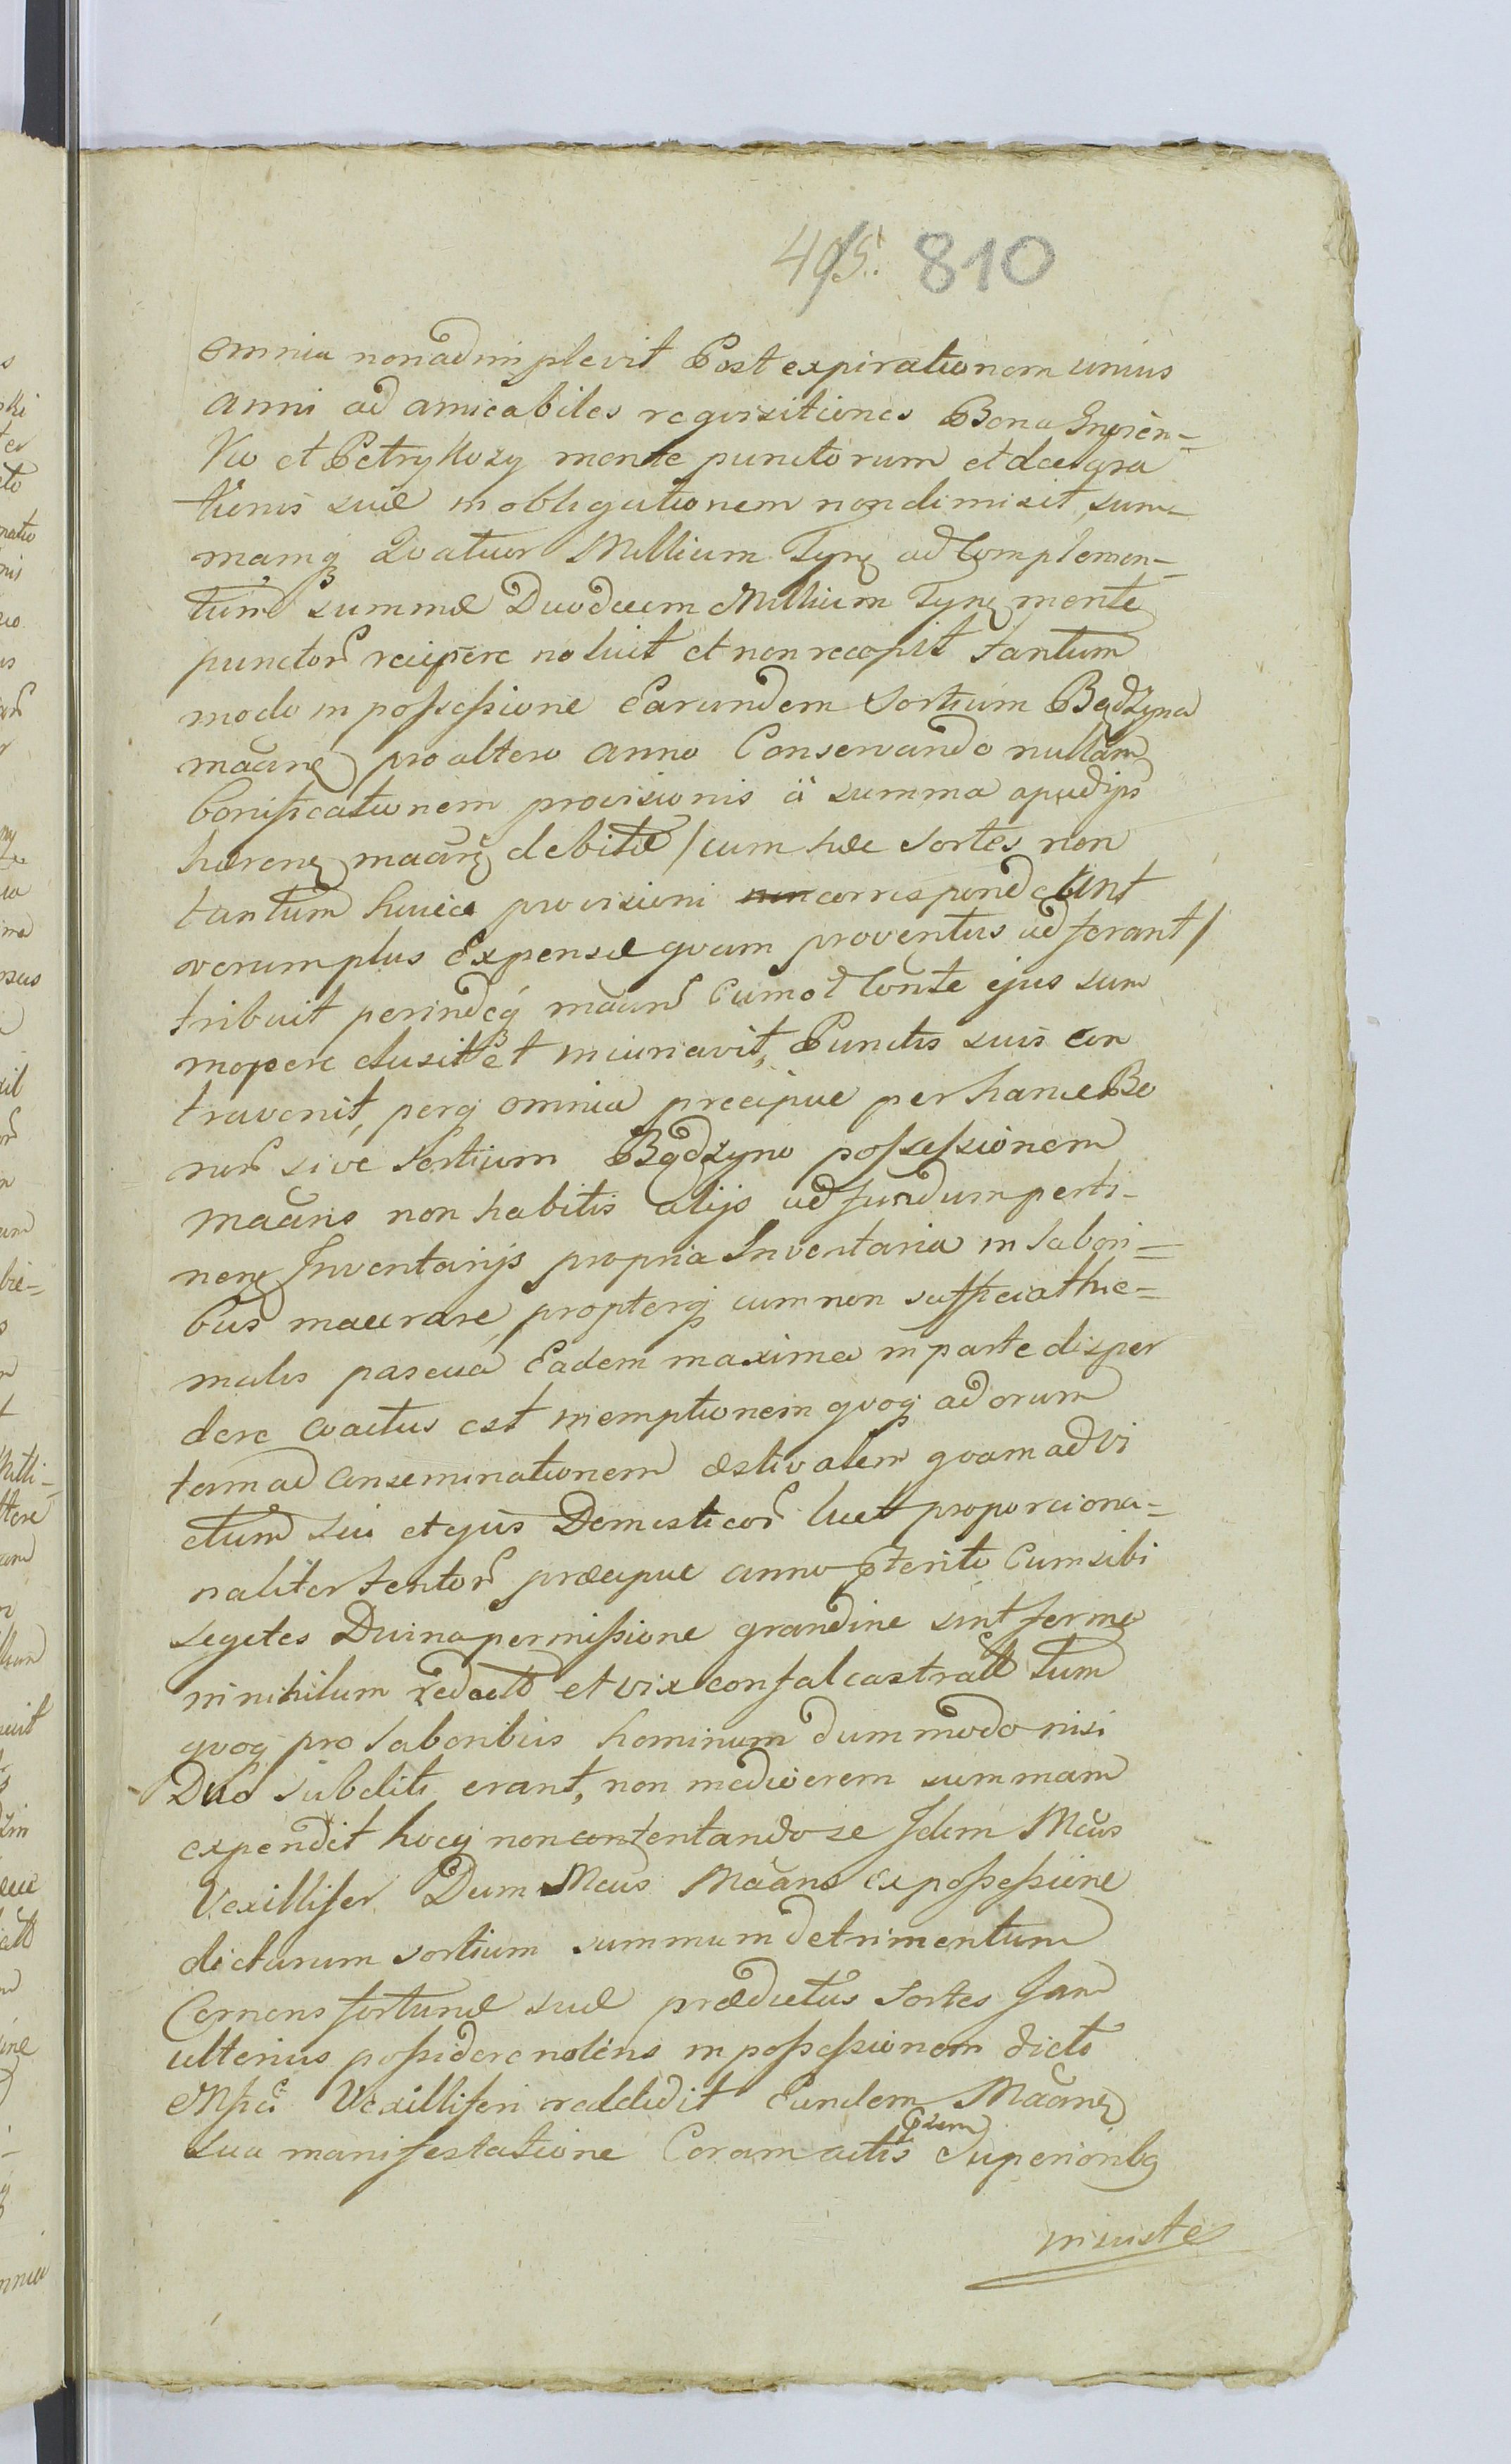 495. 810
omnia non adimplevit Post expirationem unius
anni ad amicabiles reqvisitiones Bona
et Petrykozy mente punctorum et
suæ in obligationem non dimisit, sum-
mamq Qvatuor Millium ad Complemen-
tum summæ Duodecim Millium mente
punctor recipere noluit et non recepit tantum
modo in possessione Earundem Sortium Bądzyna
maãne pro altero anno Conservando nullam
bonificationem provisionis à summa apud ips
hæren maãn debitæ / cum hæ sortes non
tantum huic provisioni correspondeant
verum plus Expensæ qvam proventus adferant /
tribuit perindeq maãn Cum Conte ejus sum
mopere elusit et iniuriavit, Punctis suis con
travenit, perq omnia precipue per hanc Bo
nor sive Sortium Bądzyno possessionem
maãns non habitis alijs ad fundum perti-
nen Inventarijs propria Inventaria in labori-
bus macerare, propterq cum non sufficiat hie-
malis pascua Eadem maxima in parte disper
dere coactus est in emptionem qvoq ad
tam ad conseminationem æstivalem qvam ad vi
ctum sui et ejus Domesticor licet proporciona-
naliter tentor præcipue anno pterito Cum sibi
segetes Divina permissione grandine sint ferme
in nihilum redactæ et vix confalcastratæ tum
qvoq pro laboribus hominum dummodo nisi
Duo subditi erant, non mediocrem summam
expendit hocq non contentando se Idem Mcus
Vexillifer Dum Mcus Maãns ex possessione
dictarum sortium summum detrimentum
Cernens fortunæ suæ prædictas sortes Jam
ulterius possidere nolens in possessionem dicto
Mfco Vexilliferi reddidit Eundem Maãne
sua manifestatione Coram actis psum Superioribq
iniuste